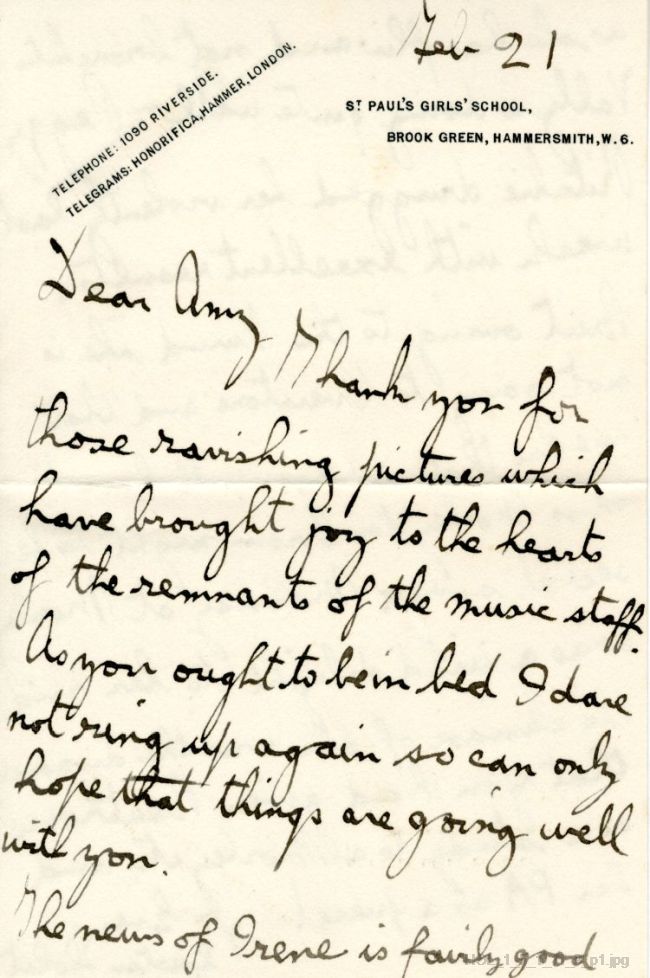 Feb 21
TELEPHONE: 1090 RIVERSIDE.
TELEGRAMS: HONORIFICA, HAMMER, LONDON.
ST PAUL'S GIRLS' SCHOOL,
BROOK GREEN, HAMMERSMITH, W. 6.
Dear Amy
Thank you for
those ravishing pictures which
have brought joy to the hearts
of the remnants of the music staff.
As you ought to be in bed I dare
not ring up again so can only
hope that things are going well
with you.
The news of Irene is fairly good
p1.jpg